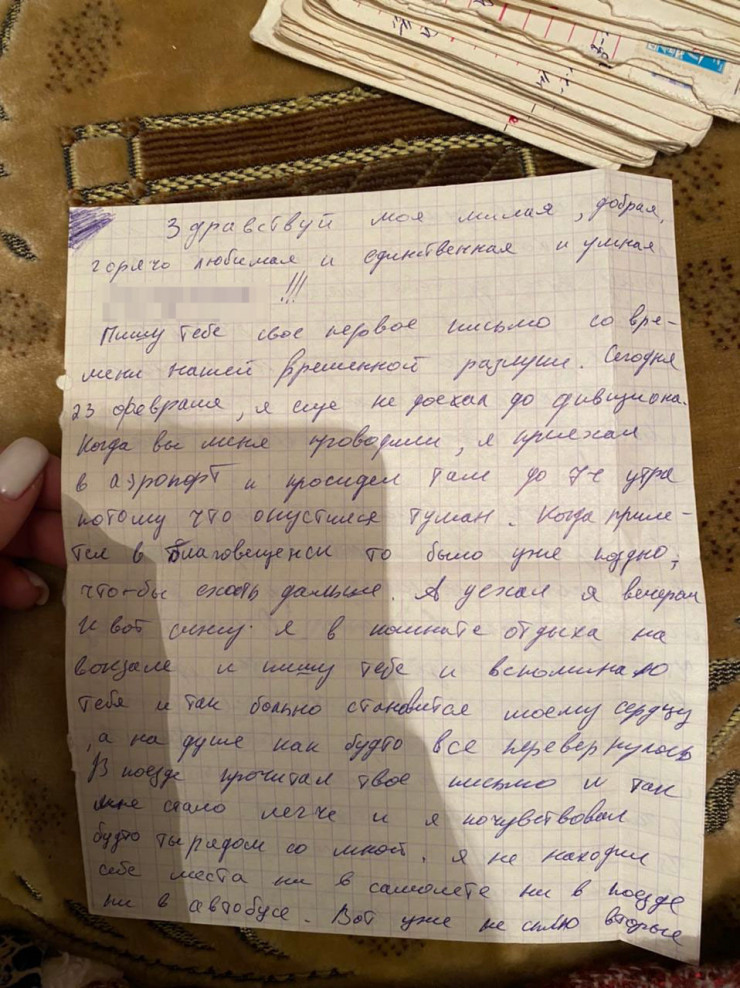 Здравствуй моя милая, добрая,
горячо любимая и единственная и умная
!!!
Пишу тебе свое первое письмо со вре-
мени нашей временной разлуки. Сегодня
23 февраля, я еще не доехал до дивизиона.
Когда вы меня проводили, я приехал
в аэропорт и просидел там до 7ч утра
потому что опустился туман. Когда приле-
тел в Благовещенск то было уже поздно,
что-бы ехать дальше. А уехал я вечером
И вот сижу я в комнате отдыха на
вокзале и пишу тебе и вспоминаю
тебя и так больно становится моему сердцу
, а на душе как будто все перевернулось
В поезде прочитал твое письмо и так
мне стало легче и я почувствовал
будто ты рядом со мной. Я не находил
себе места ни в самолете ни в поезде
ни в автобусе. Вот уже не сплю вторые